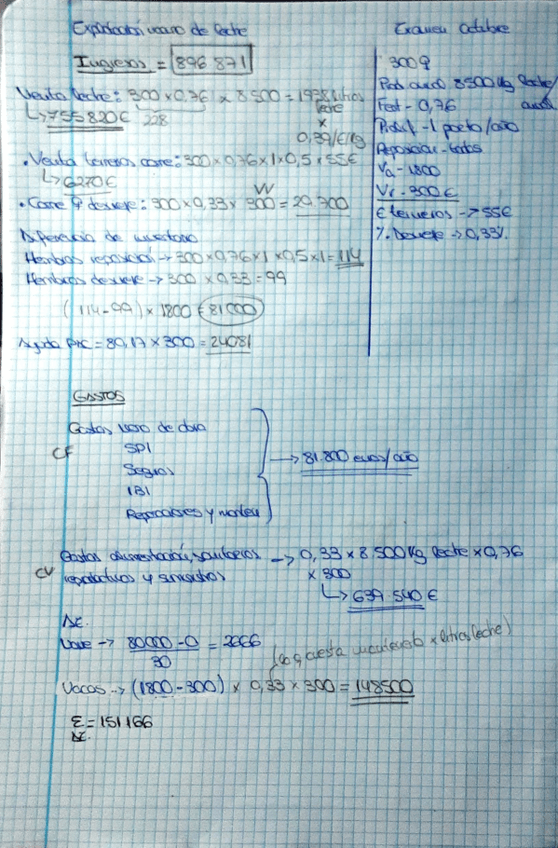 Explotación vacuno de leche
Ingresos = 896 871
Venta leche: 300 x 0,76 x 8 500 = 1938 litros
leche
x
0,39/€/kg
↳ 755 820 €
228
• Venta terneros carne: 300 x 0,76 x 1 x 0,5 x 55€
↳ 6270 €
VV
• Carne ♀ desveje: 300 x 0,33 x 300 = 29.700
Diferencia de inventario
Hembras reposición → 300 x 0,76 x 1 x 0,5 x 1 = 114
Hembras desveje → 300 x 0,33 = 99
(114 - 99) x 1800 € 81000
Ayuda PAC = 80,17 x 300 = 24081
Examen Octubre
300 ♀
Prod. anual 8500 kg leche/
anual
Fert - 0,76
Prolif - 1 parto/año
Reposición - todas
Va - 1800
Vr - 300 €
€ terneros → 55€
% Desveje → 0,33%
GASTOS
CF
Gastos mano de obra
SPI
Seguros
IBI
Reparaciones y manten
→ 81.800 euros/año
CV
Gastos alimentación, sanitarios
reproductivos y suministros
→ 0,33 x 8.500 kg leche x 0,76
x 300
↳ 639 540 €
Nave → 80000 - 0 / 30 = 2666
(lo q cuesta mantenerlo x litros leche)
Vacas → (1800 - 300) x 0,33 x 300 = 148500
Σ = 151 166